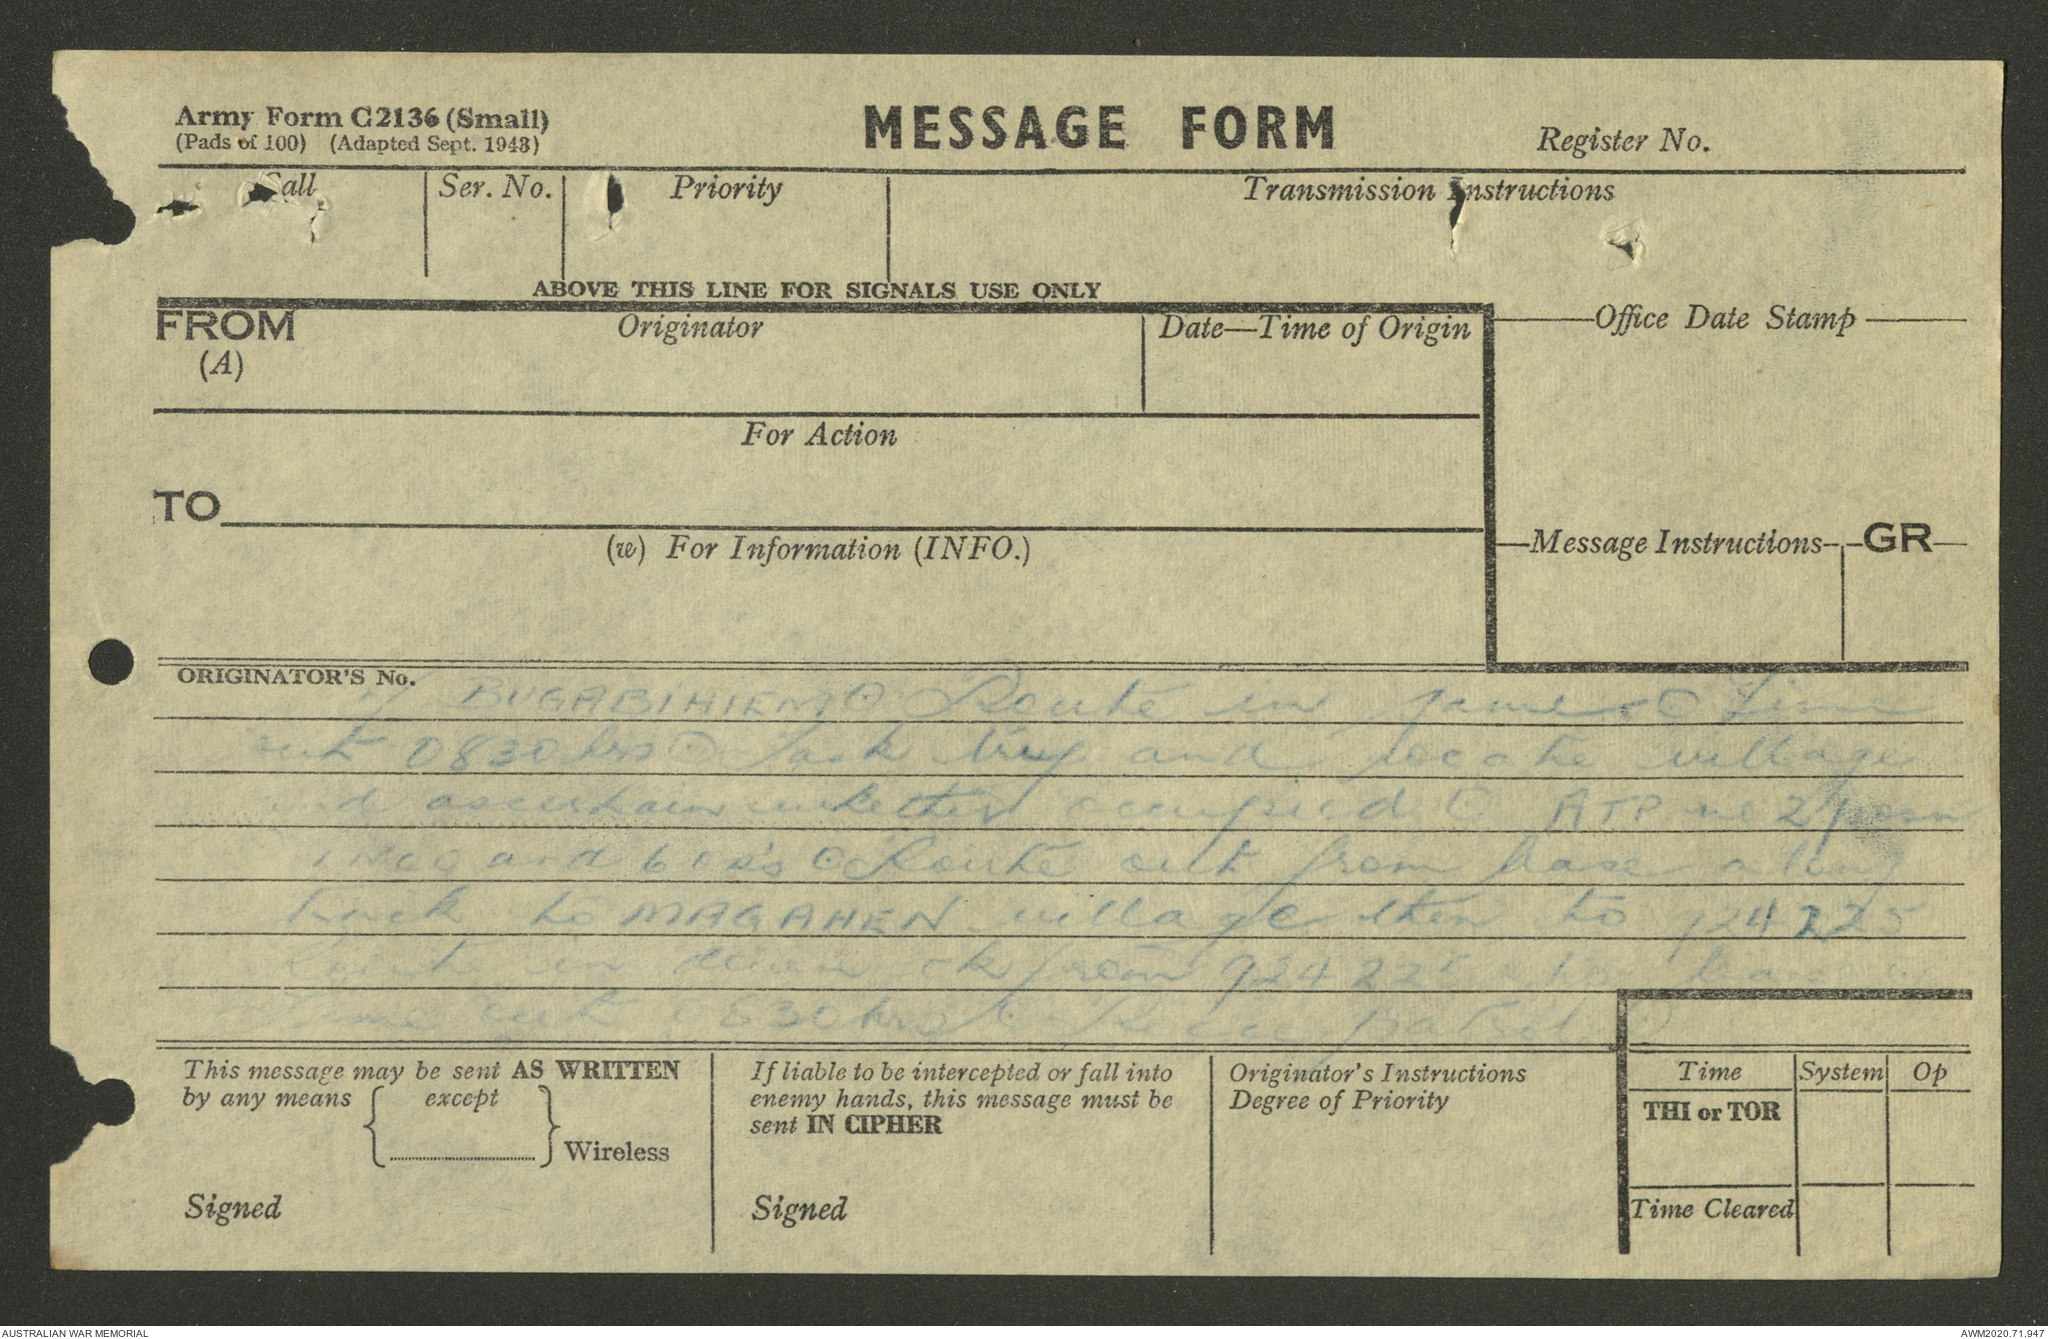 Army Form C2136 (Small)
(Pads of 100) (Adapted Sept. 1943)
MESSAGE FORM
Register No.
Call
Ser. No.
Priority
Transmission Instructions
ABOVE THIS LINE FOR SIGNALS USE ONLY
FROM
(A)
Originator
Date—Time of Origin
Office Date Stamp
For Action
TO
(w) For Information (INFO.)
Message Instructions
GR
ORIGINATOR'S No.
BUGABIHIEM ⊙ Route in same ⊙ Time
out 0830 hrs ⊙ Task try and locate village
and ascertain whether occupied ⊙ ATP no 2
1 NCO and 6 ORs ⊙ Route out from base along
track to MAGAHEN village then to 924225
Route in down ck from 924225 to base
Time out 0830 hrs ⊙ Recce patrol ⊙
This message may be sent AS WRITTEN
by any means except
Wireless
Signed
If liable to be intercepted or fall into
enemy hands, this message must be
sent IN CIPHER
Signed
Originator's Instructions
Degree of Priority
Time
System
Op
THI or TOR
Time Cleared
AUSTRALIAN WAR MEMORIAL
AWM2020.71.947